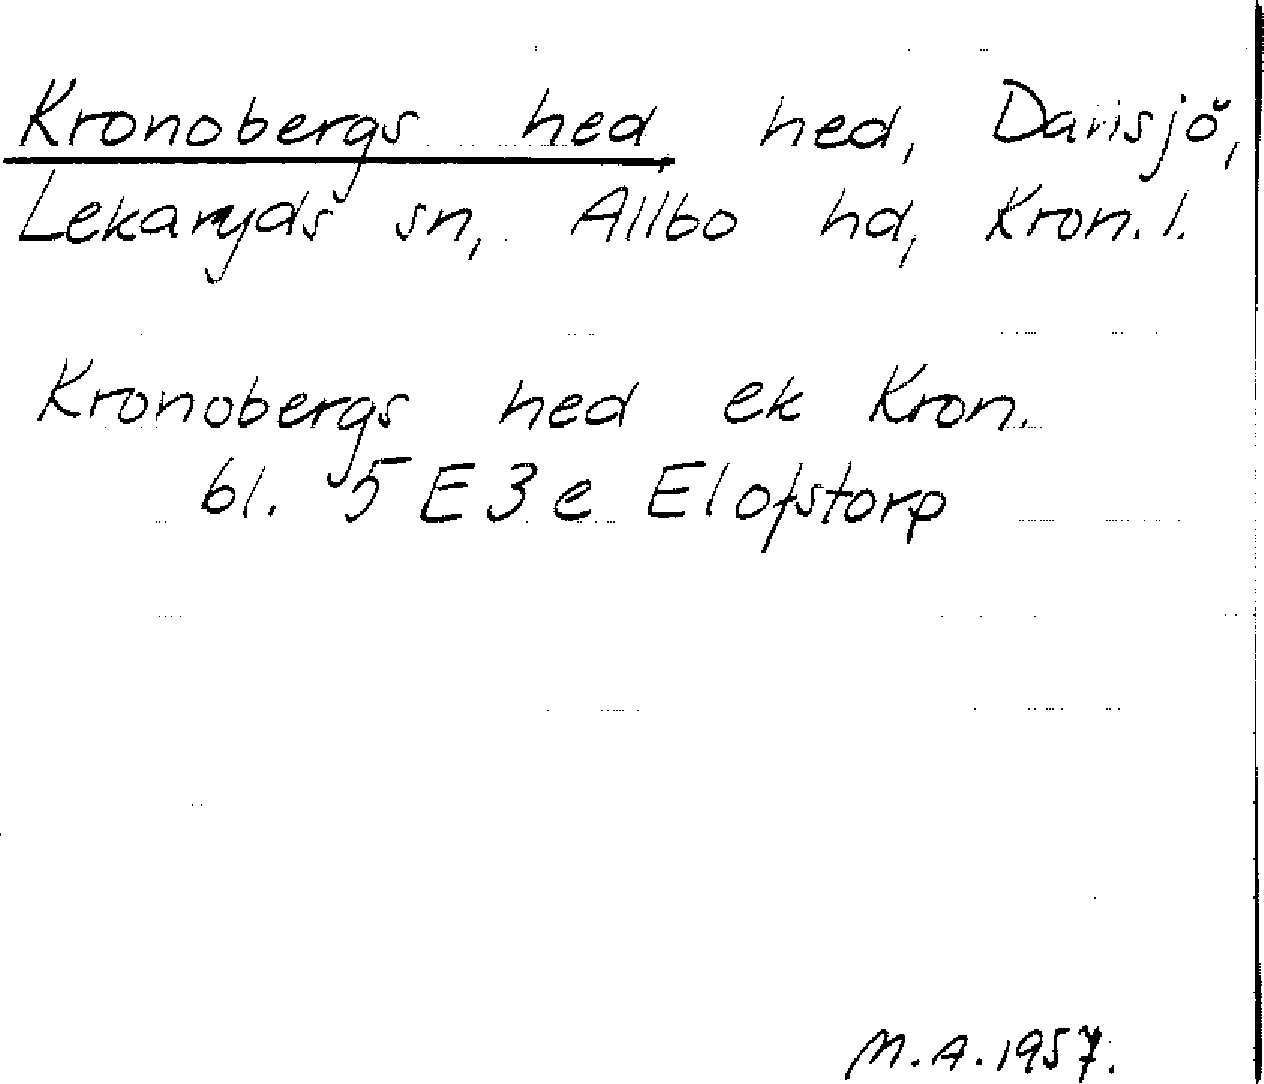 Kronobergs hed, hed, Dansjö,
Lekaryds sn, Allbo hd, Kron. l.
Kronobergs hed ek Kron.
bl. 5 E 3 e Elofstorp
M.A. 1957.